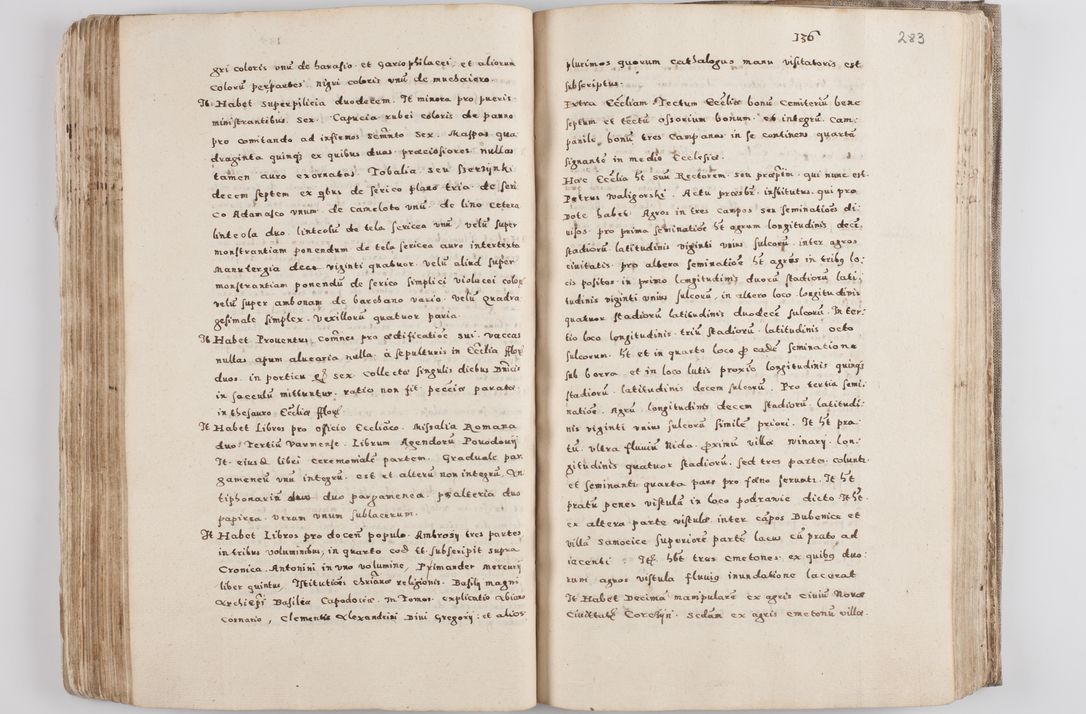 gri coloris vnũ et de harasio et gariophilacei, et aliorum
colorũ perpartes. nigri coloris vnũ de muchaiero
It Habet superpilicia duodecem. It minora pro pueris
ministrantibus. Sex. Capucia rubei coloris de panno
pro comitando ad infirmos Sex. Mappas qua
draginta quinq; ex quibus duas præciosiores nullas
tamen auro exornatas. Tobalia. seu
decem septem ex qbus de serico plano tria. de seri
co Adamasco vnum. de cameloto vnũ. de lino cetera
linteola duo. linteolũ de tela sericea vnũ, velũ super
monstrantiam ponendum de tela sericea auro intertexto
Manutergia viginti quatuor. velũ aliud super
monstrantiam ponendũ de serico simplici violacei coloris
velũ super ambonam de barchano vario. velũ Quadra
gesimale simplex. Vexillorũ quatuor paria.
It Habet Prouentus, omnes pro ædificatioẽ sui. vaccas
nullas, apum aluearia nulla. à sepulturis in Ecclia
duos. in porticu sex. Collecta singulis diebus Dnicis
in sacculũ mittuntur. ratio non fit. peccia parata
in thesauro Eccliæ
It Habet Libros pro officio Eccliaco. Missalia Romana
duo Tertiũ Varmense. Librum Agendorũ Powodowij
It. eiusd libri ceremonialẽ partem. Graduale par
gameneũ vnũ integrũ. est et alterũ non integrũ. An
tiphonariũ duo pargamenea. psalteria duo
papirea. verum vnum sublacerum.
It Habet Libros pro docenᵈ populo. Ambrosij tres partes
in tribus voluminibus, in quarto cod et subscripit supra
Cronica. Antonini in vno volumine, Pijmander Mercurij
liber quintus, Istitutioẽs chrianæ religionis. Basilij magni
Archiepi Basileæ Capodociæ. in Tomos. explicatio
Cornario, Clementis Alexandrini Diui Gregorij: et alios
136 283
plurimos quorum cathalogus manu visitatoris est
subscriptus.
Extra Eccliam Tectum Eccliæ bonũ Cemiteriũ bene
septum et tectũ assorium bonum et integrũ. Cam
panile bonũ tres Campanas in se continens quartã
signantẽ in medio Ecclesiæ.
Hæc Ecclia ht suũ Rectorem. seu præpm. qui nunc est.
Petrus waligorski. Actu præsbr. institutus. qui pro
Dote habet. Agros in tres campos seu seminatioẽs di
uisos. pro prima seminatioẽ ht agrum longitudinis decẽ
stadiorũ latitudinis viginti vnius sulcorũ. inter agros
ciuitatis. pro altera seminatioẽ ht agros in tribq lo
cis positos in primo longitudinis duorũ stadiorũ lati
tudinis viginti vnius sulcorũ, in altero loco longitudinis
quatuor stadiorũ latitudinis duodecẽ sulcorũ. In ter
tio loco longitudinis. triũ stadiorũ. latitudinis octo
sulcorum. ht. et in quarto loco p eadẽ seminatione
sub borra. et in loco lutis proxio longitudinis quinq;
stadiorũ. latitudinis decem sulcorũ. Pro tertia semi
natioẽ. Agrũ longitudinis decem stadiorũ. latitudi
nis viginti vnius sulcorũ similẽ priori. It ht pra
tũ. vltra fluuiũ Nida. proximũ villæ winary. Lon
gitudinis quatuor stadiorũ. sed tres partes. coluntr
et seminantr quarta pars pro fæno seruatr. It ht
pratũ penes vistulã in loco podrawie dicto It ht
ex altera parte vistulæ. inter cãpos Bubenice et
villã Samocice superiorẽ partẽ lacus cũ prato ad
iacenti. It hbt tres cmetones. ex quibq duo
rum agros vistula fluuiq inundatione lacerat
It Habet Decimã manipularẽ ex agris ciuiũ Nouæ
Ciuittatis Corchijn. Sedam ex agris cmetonũ villæ.